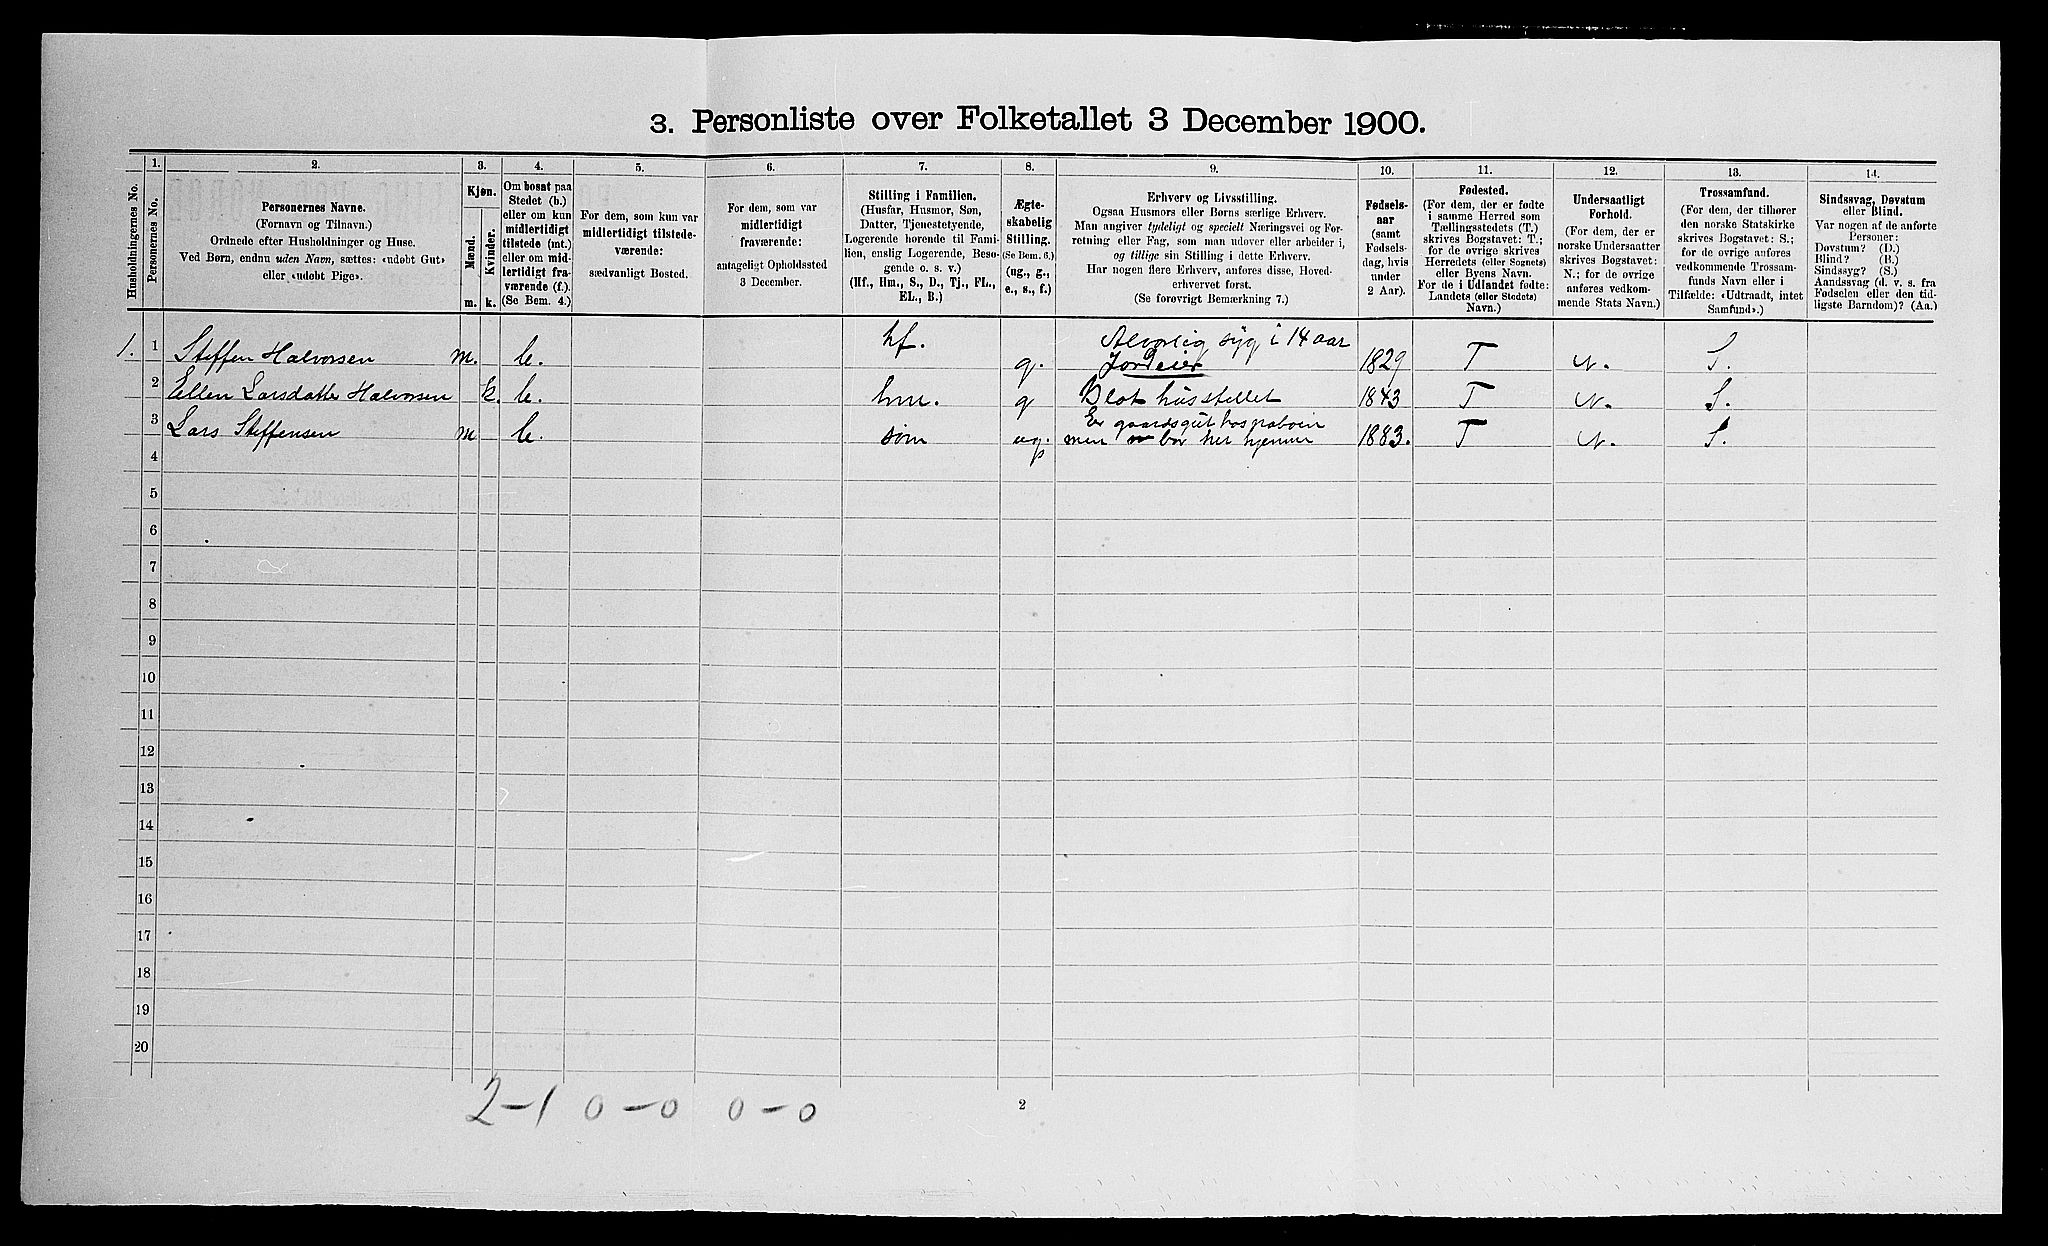 3. Personliste over Folketallet 3 December 1900.
1. 2. 3. 4. 5. 6. 7. 8. 9. 10. 11. 12. 13. 14.
Husholdningernes No.
Personernes No.
Personernes Navne.
(Fornavn og Tilnavn.)
Ordnede efter Husholdninger og Huse.
Ved Børn, endnu uden Navn, sættes: «udøbt Gut»
eller «udøbt Pige».
Kjøn.
Mænd.
Kvinder.
m. k.
Om bosat paa
Stedet (b.)
eller om kun
midlertidigt
tilstede (mt.)
eller om mid-
lertidigt fra-
værende (f.).
(Se Bem. 4.)
For dem, som kun var
midlertidigt tilstede-
værende:
sædvanligt Bosted.
For dem, som var
midlertidigt
fraværende:
antageligt Opholdssted
3 December.
Stilling i Familien.
(Husfar, Husmor, Søn,
Datter, Tjenestetyende,
Logerende hørende til Fami-
lien, enslig Logerende, Besø-
gende o. s. v.)
(Hf., Hm., S., D., Tj., FL.,
EL., B.)
Ægte-
skabelig
Stilling.
(Se Bem. 6.)
(ug., g.,
e., s., f.)
Erhverv og Livsstilling.
Ogsaa Husmors eller Børns særlige Erhverv.
Man angiver tydeligt og specielt Næringsvei og For-
retning eller Fag, som man udøver eller arbeider i,
og tillige sin Stilling i dette Erhverv.
Har nogen flere Erhverv, anføres disse, Hoved-
erhvervet først.
(Se forøvrigt Bemærkning 7.)
Fødsels-
aar
(samt
Fødsels-
dag, hvis
under
2 Aar).
Fødested.
(For dem, der er fødte
i samme Herred som
Tællingsstedets (T.)
skrives Bogstavet: T.;
for de øvrige skrives
Herredets (eller Sognets)
eller Byens Navn.
For de i Udlandet fødte:
Landets (eller Stedets)
Navn.)
Undersaatligt
Forhold.
(For dem, der er
norske Undersaatter
skrives Bogstavet:
N.; for de øvrige
anføres vedkom-
mende Stats Navn.)
Trossamfund.
(For dem, der tilhører
den norske Statskirke
skrives Bogstavet: S.;
for de øvrige anføres
vedkommende Trossam-
funds Navn eller i
Tilfælde: «Udtraadt, intet
Samfund».)
Sindssvag, Døvstum
eller Blind.
Var nogen af de anførte
Personer:
Døvstum? (D.)
Blind? (B.)
Sindssyg? (S.)
Aandssvag (d. v. s. fra
Fødselen eller den tid-
ligste Barndom)? (Aa.)
hf. Alvorlig syg i 14 aar
1. 1 Steffen Halvorsen m. b. g. Jordeier 1829 T N. S.
2 Ellen Larsdatter Halvorsen k. b. hm. g Blot husstellet 1843 T N. S.
Er gaardsgut hos naboen
3 Lars Steffensen m b. søn ug. men bor her hjemme 1883. T N. S.
4
5
6
7
8
9
10
11
12
13
14
15
16
17
18
19
20
2-1 0-0 0-0
2